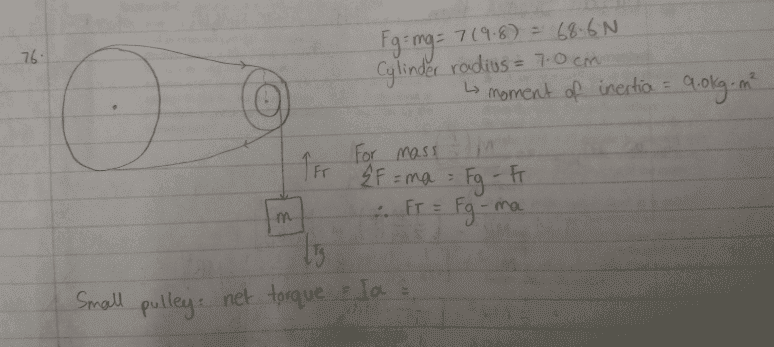 76.
Fg=mg= 7(9.8) = 68.6N
Cylinder radius = 7.0cm
↳ moment of inertia = 9.0kg·m²
For mass
ΣF = ma = Fg - FT
∴ FT = Fg - ma
FT
m
Fg
Small pulley: net torque = Iα =